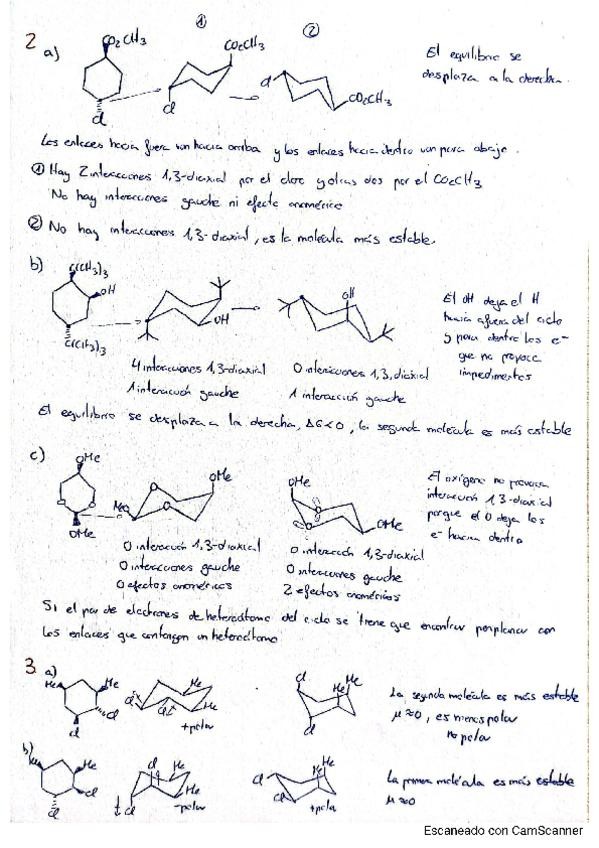 ① ②
2 a) CO₂CH₃ CO₂CH₃ El equilibrio se
cl desplaza a la derecha.
cl cl CO₂CH₃
Los enlaces hacia fuera van hacia arriba y los enlaces hacia dentro van para abajo.
① Hay 2 interacciones 1,3-diaxial por el cloro y otras dos por el CO₂CH₃
No hay interacciones gauche ni efecto anomérico
② No hay interacciones 1,3-diaxial, es la molécula más estable.
b) C(CH₃)₃ OH El OH deja el H
OH OH hacia afuera del ciclo
C(CH₃)₃ y para dentro los e⁻
que no provoca
impedimentos
4 interacciones 1,3-diaxial 0 interacciones 1,3, diaxial
1 interacción gauche 1 interacción gauche
El equilibrio se desplaza a la derecha, ΔG<0, la segunda molécula es más estable
c) OMe OMe OMe El oxígeno no provoca
O O MeO O O interacción 1,3-diaxial
OMe OMe porque el O deja los
e⁻ hacia dentro
0 interacción 1,3-diaxial 0 interacción 1,3-diaxial
0 interacciones gauche 0 interacciones gauche
0 efectos anoméricos 2 efectos anoméricos
Si el par de electrones de heteroátomo del ciclo se tiene que encontrar periplanar con
los enlaces que contengan un heteroátomo
3 a) Me Me Me cl Me Me La segunda molécula es más estable
cl cl cl Me μ≈0, es menos polar
cl +polar cl no polar
b) Me cl Me Me La primera molécula es más estable
cl cl μ≈0
cl cl -polar cl +polar
Escaneado con CamScanner